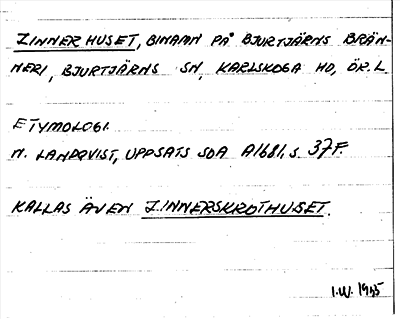 ZINNERHUSET, BINAMN PÅ BJURTJÄRNS BRÄN-
NERI, BJURTJÄRNS SN, KARLSKOGA HD, ÖR. L.
ETYMOLOGI.
N. LANDQVIST, UPPSATS SOA A1681, S. 37F.
KALLAS ÄVEN ZINNERSKROTHUSET.
I.W. 1945